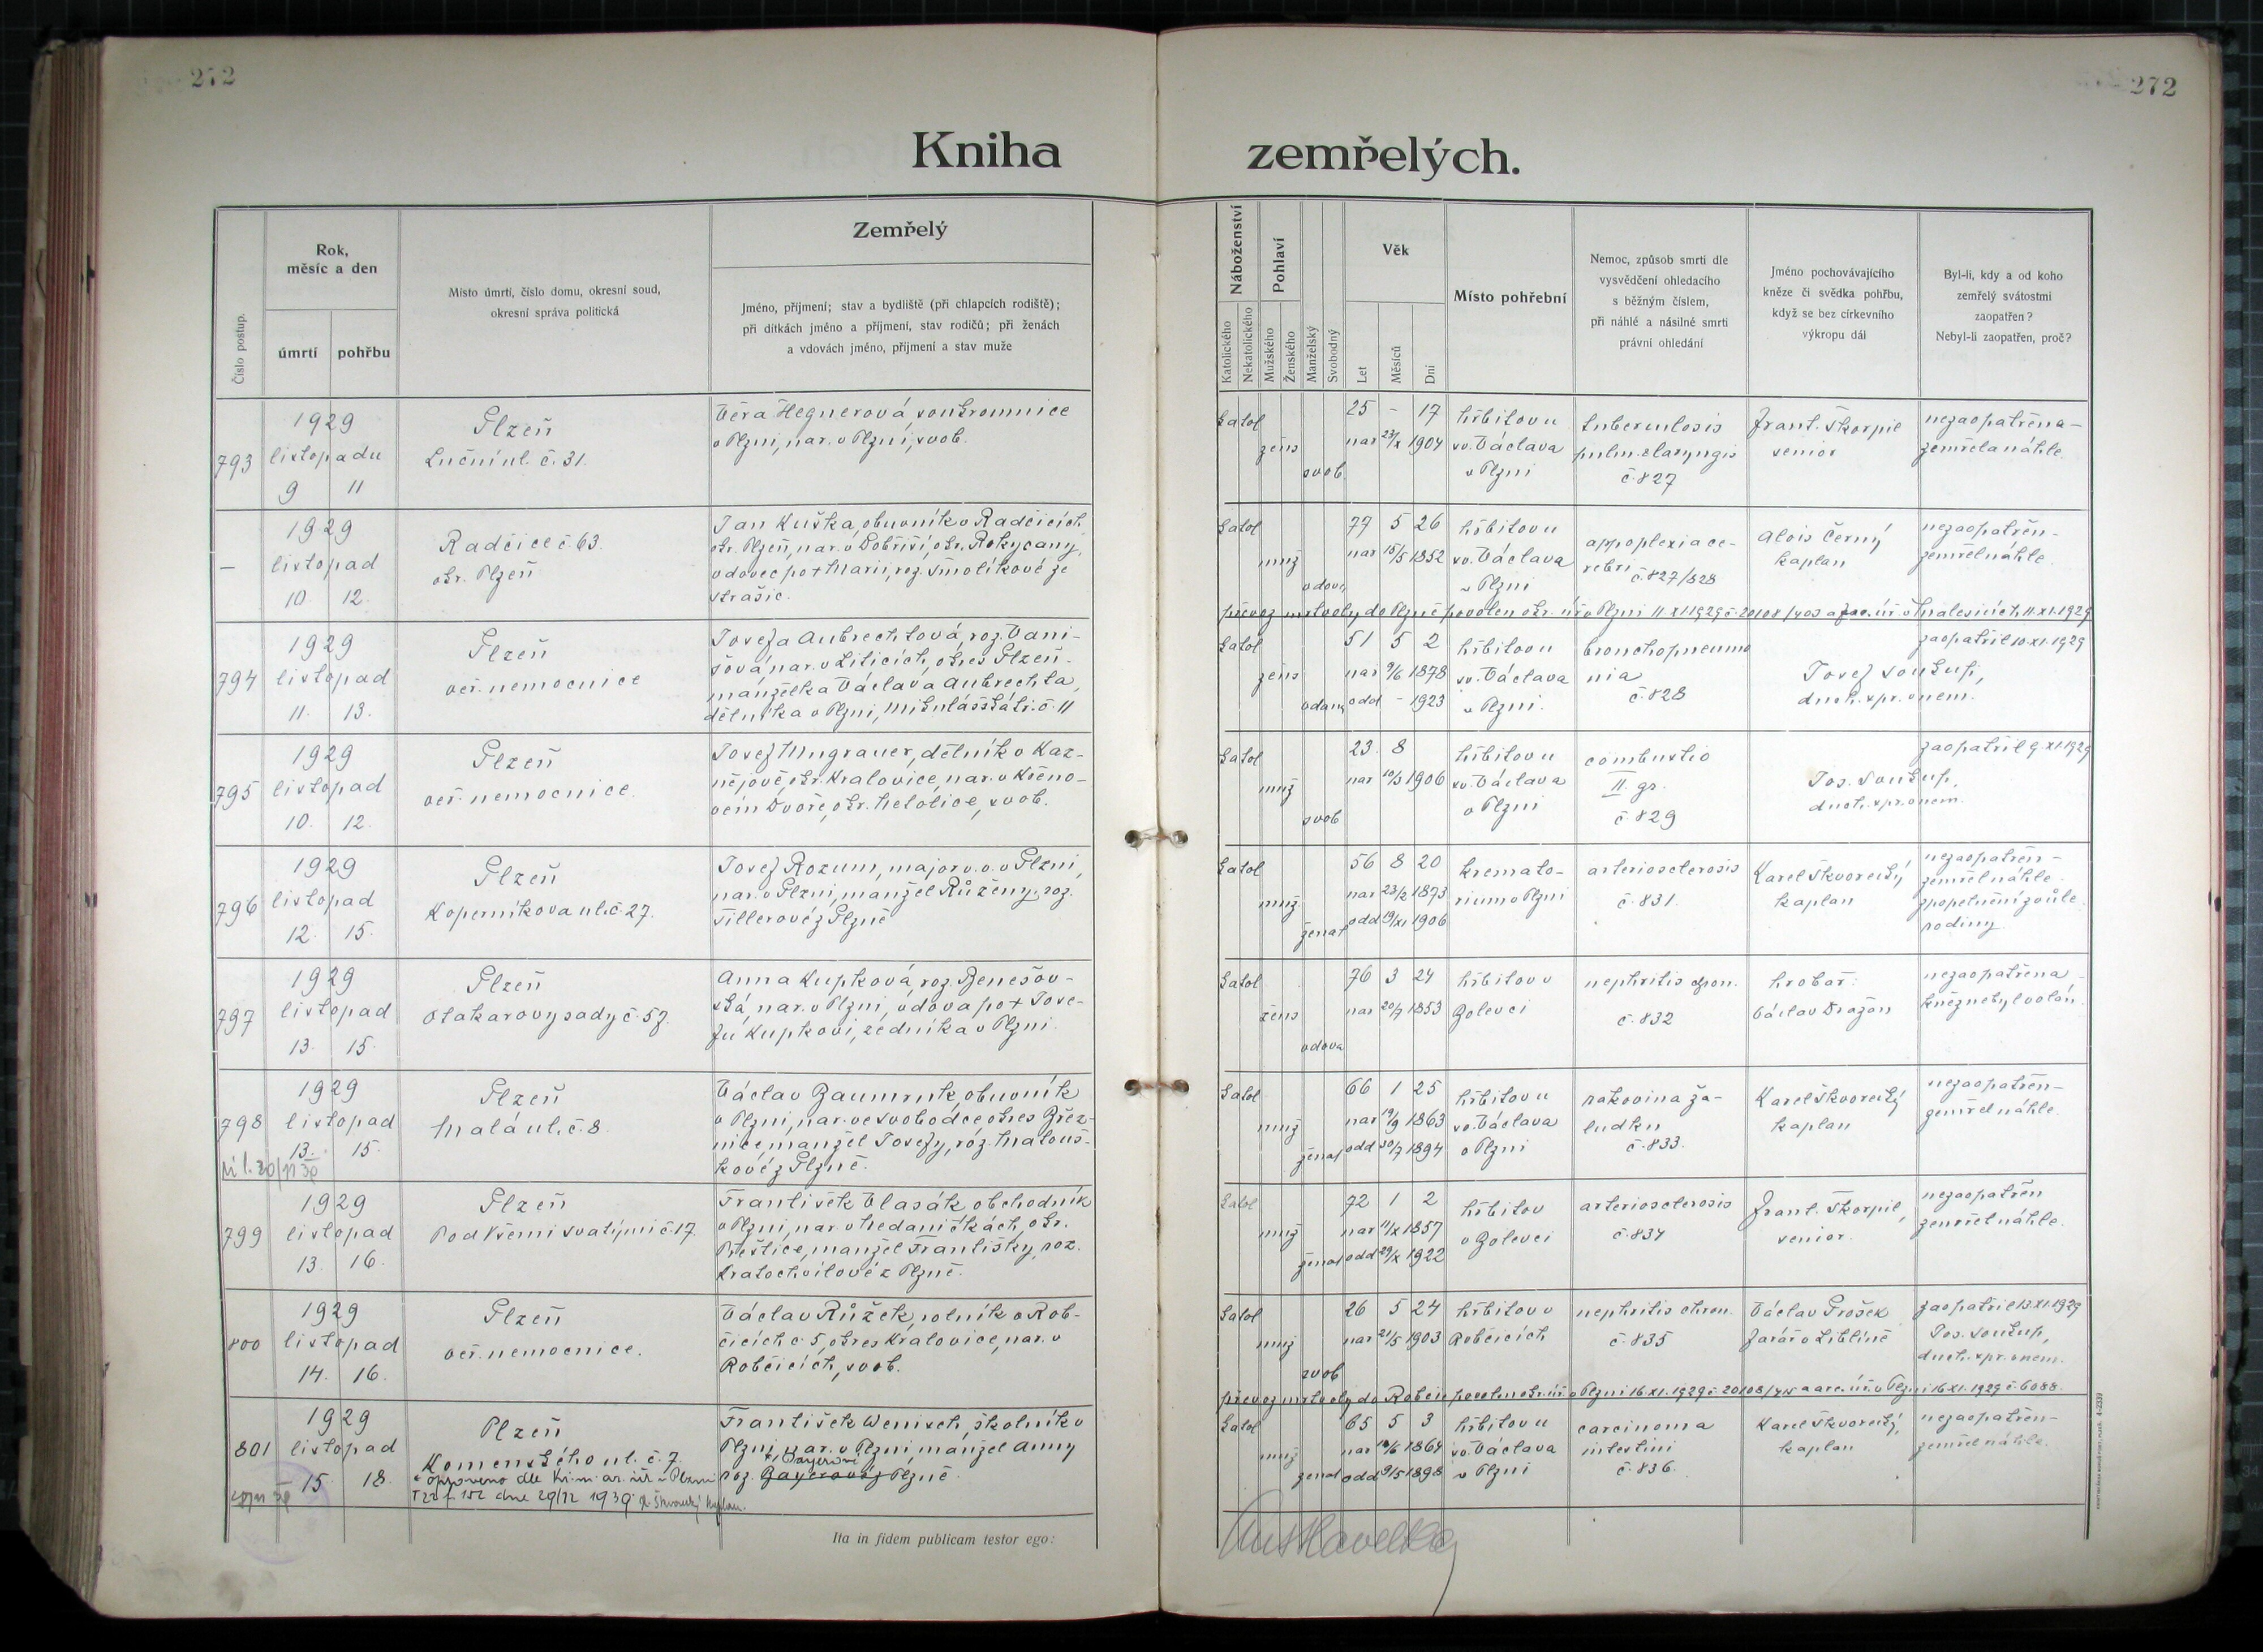 272
272
Kniha zemřelých.
Číslo postup.
Rok,
měsíc a den
úmrtí
pohřbu
Místo úmrtí, číslo domu, okresní soud,
okresní správa politická
Zemřelý
Jméno, příjmení; stav a bydliště (při chlapcích rodiště);
při dítkách jméno a příjmení, stav rodičů; při ženách
a vdovách jméno, příjmení a stav muže
Náboženství
Katolického
Nekatolického
Pohlaví
Mužského
Ženského
Manželský
Svobodný
Věk
Let
Měsíců
Dní
Místo pohřební
Nemoc, způsob smrti dle
vysvědčení ohledacího
s běžným číslem,
při náhlé a násilné smrti
právní ohledání
Jméno pochovávajícího
kněze či svědka pohřbu,
když se bez církevního
výkropu dál
Byl-li, kdy a od koho
zemřelý svátostmi
zaopatřen?
Nebyl-li zaopatřen, proč?
793
1929
listopadu
9 11
Plzeň
Luční ul. č. 31.
Věra Hegnerová, soukromnice
v Plzni, nar. v Plzni, svob.
katol
žens
svob.
25 - 17
nar 23/X 1904
hřbitov u
sv. Václava
v Plzni
tuberculosis
pulm. et laryngis
č. 827
Frant. Škorpil
senior
nezaopatřena -
zemřela náhle.
-
1929
listopad
10. 12.
Radčice č. 63.
okr. Plzeň
Jan Kuška, obuvník v Radčicích
okr. Plzeň, nar. v Dobříši, okr. Rokycany,
vdovec po + Marii, roz. Smolíkové ze
Strašic.
katol
muž
vdovec
77 5 26
nar 15/5 1852
hřbitov u
sv. Václava
v Plzni
apoplexia ce-
rebri
č. 827/828
Alois Černý
kaplan
nezaopatřen -
zemřel náhle
převoz mrtvoly do Plzně povolen okr. úř. v Plzni 11. XI 1929 č. 20108/403 a far. úř. v Malesicích 11. XI. 1929
794
1929
listopad
11. 13.
Plzeň
veř. nemocnice
Josefa Aubrechtová, roz. Vani-
šová, nar. v Liticích, okres Plzeň.
manželka Václava Aubrechta,
dělníka v Plzni, Mikulášská tř. č. 11
katol
žens
vdaná
51 5 2
nar 9/6 1878
odd - 1923
hřbitov u
sv. Václava
v Plzni.
bronchopneumo
nia
č. 828
Josef Soukup,
duch. spr. v nem.
zaopatřil 10. XI. 1929
795
1929
listopad
10. 12.
Plzeň
veř. nemocnice.
Josef Mugrauer, dělník v Kaz-
nějově, okr. Kralovice, nar. v Křeno-
vém Dvoře, okr. Netolice, svob.
katol
muž
svob
23. 8
nar 10/3 1906
hřbitov u
sv. Václava
v Plzni
combustio
II. gr.
č. 829
Jos. Soukup,
duch. spr. v nem.
zaopatřil 9. XI. 1929
796
1929
listopad
12. 15.
Plzeň
Koperníkova ul. č. 27.
Josef Rozum, major v. v. v Plzni,
nar. v Plzni, manžel Růženy, roz.
Tillerové z Plzně
katol
muž
ženat
56 8 20
nar 23/2 1873
odd 19/XI 1906
kremato-
rium v Plzni
arteriosclerosis
č. 831.
Karel Škvorecký
kaplan
nezaopatřen -
zemřel náhle.
zpopelnění z vůle
rodiny
797
1929
listopad
13. 15.
Plzeň
Otakarovy sady č. 57.
Anna Kupková, roz. Benešov-
ská, nar. v Plzni, vdova po + Jose-
fu Kupkovi, zedníka v Plzni.
katol
žens
vdova
76 3 24
nar 20/7 1853
hřbitov v
Bolevci
nephritis chron.
č. 832
hrobař:
Václav Dražan
nezaopatřena -
kněz nebyl volán.
798
1929
listopad
13. 15.
Plzeň
Malá ul. č. 8.
Václav Baumruk, obuvník
v Plzni, nar. ve Svobodce, okres Březnice,
manžel Josefy, roz. Matouš-
kové z Plzně.
katol
muž
ženat
66 1 25
nar 19/9 1863
odd 30/7 1894
hřbitov u
sv. Václava
v Plzni
rakovina ža-
ludku
č. 833.
Karel Škvorecký
kaplan
nezaopatřen -
zemřel náhle.
799
1929
listopad
13. 16.
Plzeň
Pod Všemi svatými č. 17.
František Vlasák, obchodník
v Plzni, nar. v Nedaničkách, okr.
Přeštice, manžel Františky, roz.
Kratochvílové z Plzně.
katol
muž
ženat
72 1 2
nar 11/X 1857
odd 29/X 1922
hřbitov
v Bolevci
arteriosclerosis
č. 834
Frant. Škorpil,
senior.
nezaopatřen
zemřel náhle.
800
1929
listopad
14. 16.
Plzeň
veř. nemocnice.
Václav Růžek, rolník v Rob-
čicích č. 5, okres Kralovice, nar. v
Robčicích, svob.
katol
muž
svob
26 5 24
nar 21/5 1903
hřbitov v
Robčicích
nephritis chron.
č. 835
Václav Prošek
farář v Liblíně
zaopatřil 13. XI. 1929
Jos. Soukup,
duch. spr. v nem.
převoz mrtvoly do Robčic povolen okr. úř. v Plzni 16. XI. 1929 č. 20108/ a arc. úř. v Plzni 16. XI. 1929 č. 6088.
801
1929
listopad
15 18.
Plzeň
Komenského ul. č. 7.
+ opraveno dle krim. ar. úř. v Plzni
dne 29/12 1939. K. Škvorecký kaplan.
František Wenisch, školník v
Plzni, nar. v Plzni, manžel Anny
+ Payerové
roz. Bayerové z Plzně.
katol
muž
ženat
65 5 3
nar 1864
odd 9/5 1898
hřbitov u
sv. Václava
v Plzni
carcinoma
intestini
č. 836.
Karel Škvorecký,
kaplan
nezaopatřen -
zemřel náhle.
Ita in fidem publicam testor ego: